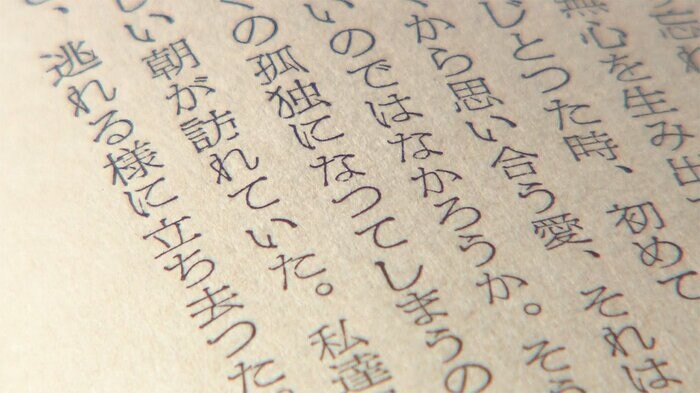 無心を生み出
じとった時、初めて
から思い合う愛、それは
いのではなかろうか。そう
くの孤独になってしまうの
しい朝が訪れていた。私達
、逃れる様に立ち去った。